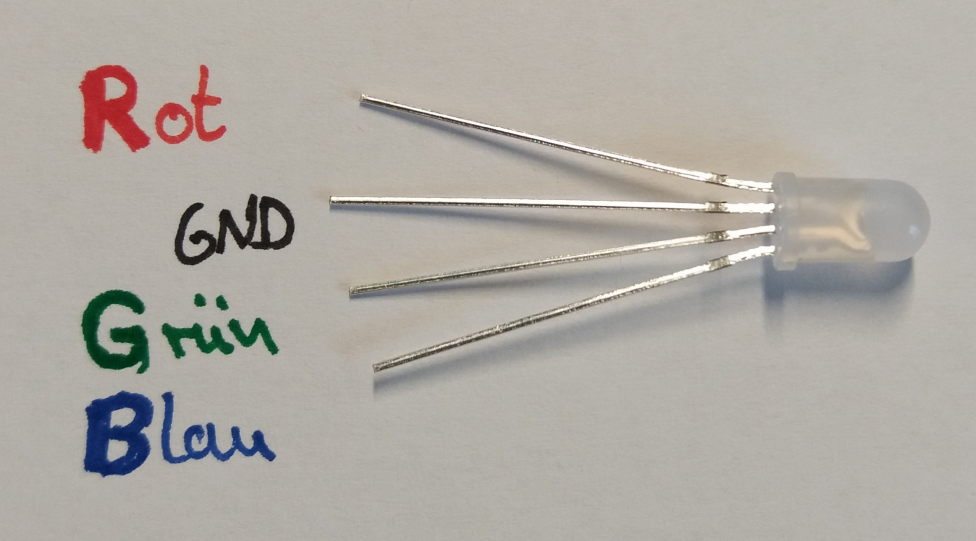 Rot
GND
Grün
Blau